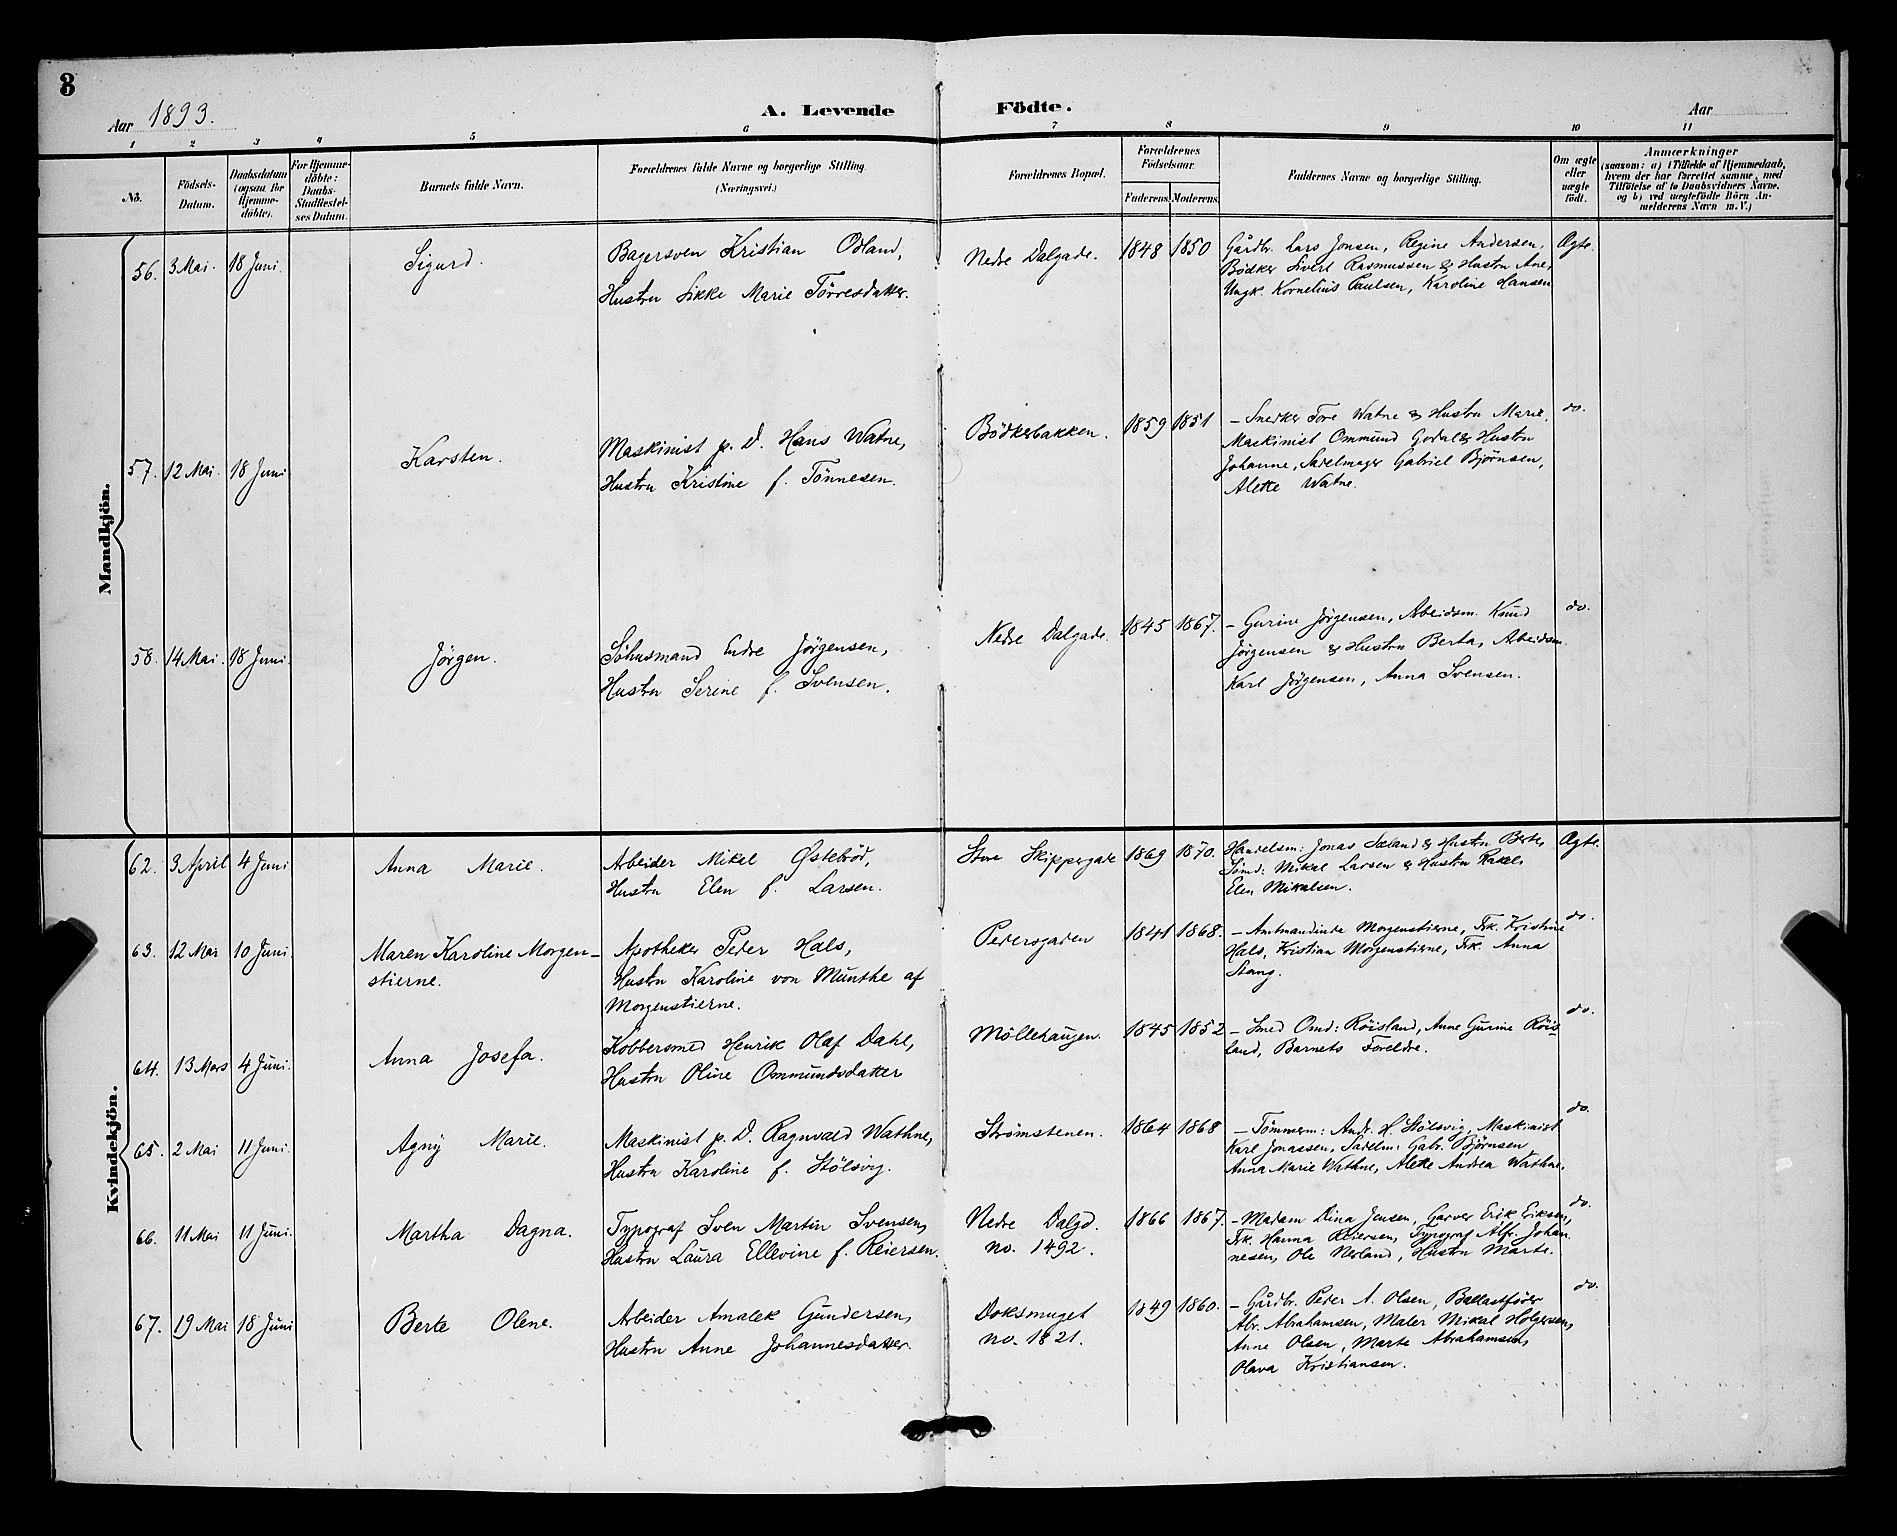 8
Aar 1893.
A. Levende Födte.
Aar
1 2 3 4 5 6 7 8 9 10 11
No.
Födsels-
Datum.
Daabsdatum
(ogsaa for
Hjemme-
döbte).
For Hjemme-
döbte:
Daabs-
Stadfæstel-
ses Datum.
Barnets fulde Navn.
Forældrenes fulde Navne og borgerlige Stilling.
(Næringsvei.)
Forældrenes Bopæl.
Forældrenes
Födselsaar.
Faderens Moderens
Faddernes Navne og borgerlige Stilling.
Om ægte
eller
uægte
födt.
Anmærkninger
(saasom: a) i Tilfælde af Hjemmedaab,
hvem der har forrettet samme, med
Tilföielse af to Daabsvidners Navne,
og b) ved uægtefödte Börn An-
melderens Navn m. V.)
Mandkjön.
56. 3 Mai. 18 Juni. Sigurd.
Bagersven Kristian Odland,
Hustru Sikke Marie Törresdatter.
Nedre Dalgade. 1848 1850
Gårdbr. Lars Jonsen, Regine Andersen,
Bødker Sivert Rasmussen & Hustru Ane,
Ungk. Kornelius Paulsen, Karoline Hansen
Ægte.
57. 12 Mai. 18 Juni Karsten.
Maskinist p. D. Hans Watne,
Hustru Kristine f. Tönnesen.
Bödkerbakken. 1859 1851
- Snedker Tore Watne & Hustru Marie,
Maskinist Ommund Godal & Hustru
Johanne, Sadelmager Gabriel Bjørnsen,
Alette Watne.
do.
58. 14 Mai. 18 Juni. Jörgen.
Söhusmand Endre Jörgensen,
Hustru Serine f. Svensen.
Nedre Dalgade. 1845 1867.
- Gurine Jørgensen, Arbeidsm. Knud
Jørgensen & Hustru Berta, Abeidsm.
Karl Jørgensen, Anna Svensen.
do.
Kvindekjön.
62. 3 April 4 Juni Anna Marie.
Arbeider Mikal Østebröd,
Hustru Elen f. Larsen.
Store Skippergade 1869 1870.
Handelsm: Jonas Sæland & Hustru Berte,
Sömd: Mikal Larsen & Hustru Rakel,
Elen Mikalsen.
Ægte.
63. 12 Mai 10 Juni. Maren Karoline Morgen-
stierne.
Apotheker Peter Hals,
Hustru Karoline von Munthe af
Morgenstierne.
Pedersgaden 1841 1868.
- Amtmandinde Morgenstierne, Frk. Kristine
Hals, Kristian Morgenstierne, Frk. Anna
Stang.
do.
64. 13 Mars 4 Juni. Anna Josefa.
Kobbersmed Henrik Olaf Dahl,
Hustru Oline Ommundsdatter
Möllehaugen. 1845 1852
- Smed Omd: Röisland, Anne Gurine Röis-
land, Barnets Foreldre.
do.
65. 2 Mai 11 Juni. Agny Marie.
Maskinist p. D. Ragnvald Wathne,
Hustru Karoline f. Stölsvig.
Strömstenen. 1864 1868
- Tömmerm: Andr. H. Stölsvig, Maskinist
Karl Jonassen, Sadelm: Gabr. Bjørnsen
Anna Marie Wathne, Alette Andrea Wathne.
do.
66. 11 Mai 11 Juni. Martha Dagna.
Typograf Sven Martin Svensen,
Hustru Laura Ellevine f. Reiersen.
Nedre Dalgd.
no. 1492.
1866 1867.
- Madam Dina Jensen, Garver Erik Eiksen,
Frk. Hanna Reiersen, Typograf Alfr. Johan
nesen, Ole Nerland, Hustru Marte.
do.
67. 19 Mai 18 Juni Berte Olene.
Arbeider Amalek Gundersen,
Hustru Anne Johannesdatter.
Doksmuget
no. 1821.
1849 1860.
- Gårdbr. Peder A. Olsen, Ballastfører
Abr. Abrahamsen, Maler Mikal Holgersen,
Anne Olsen, Marte Abrahamsen,
Olava Kristiansen.
do.